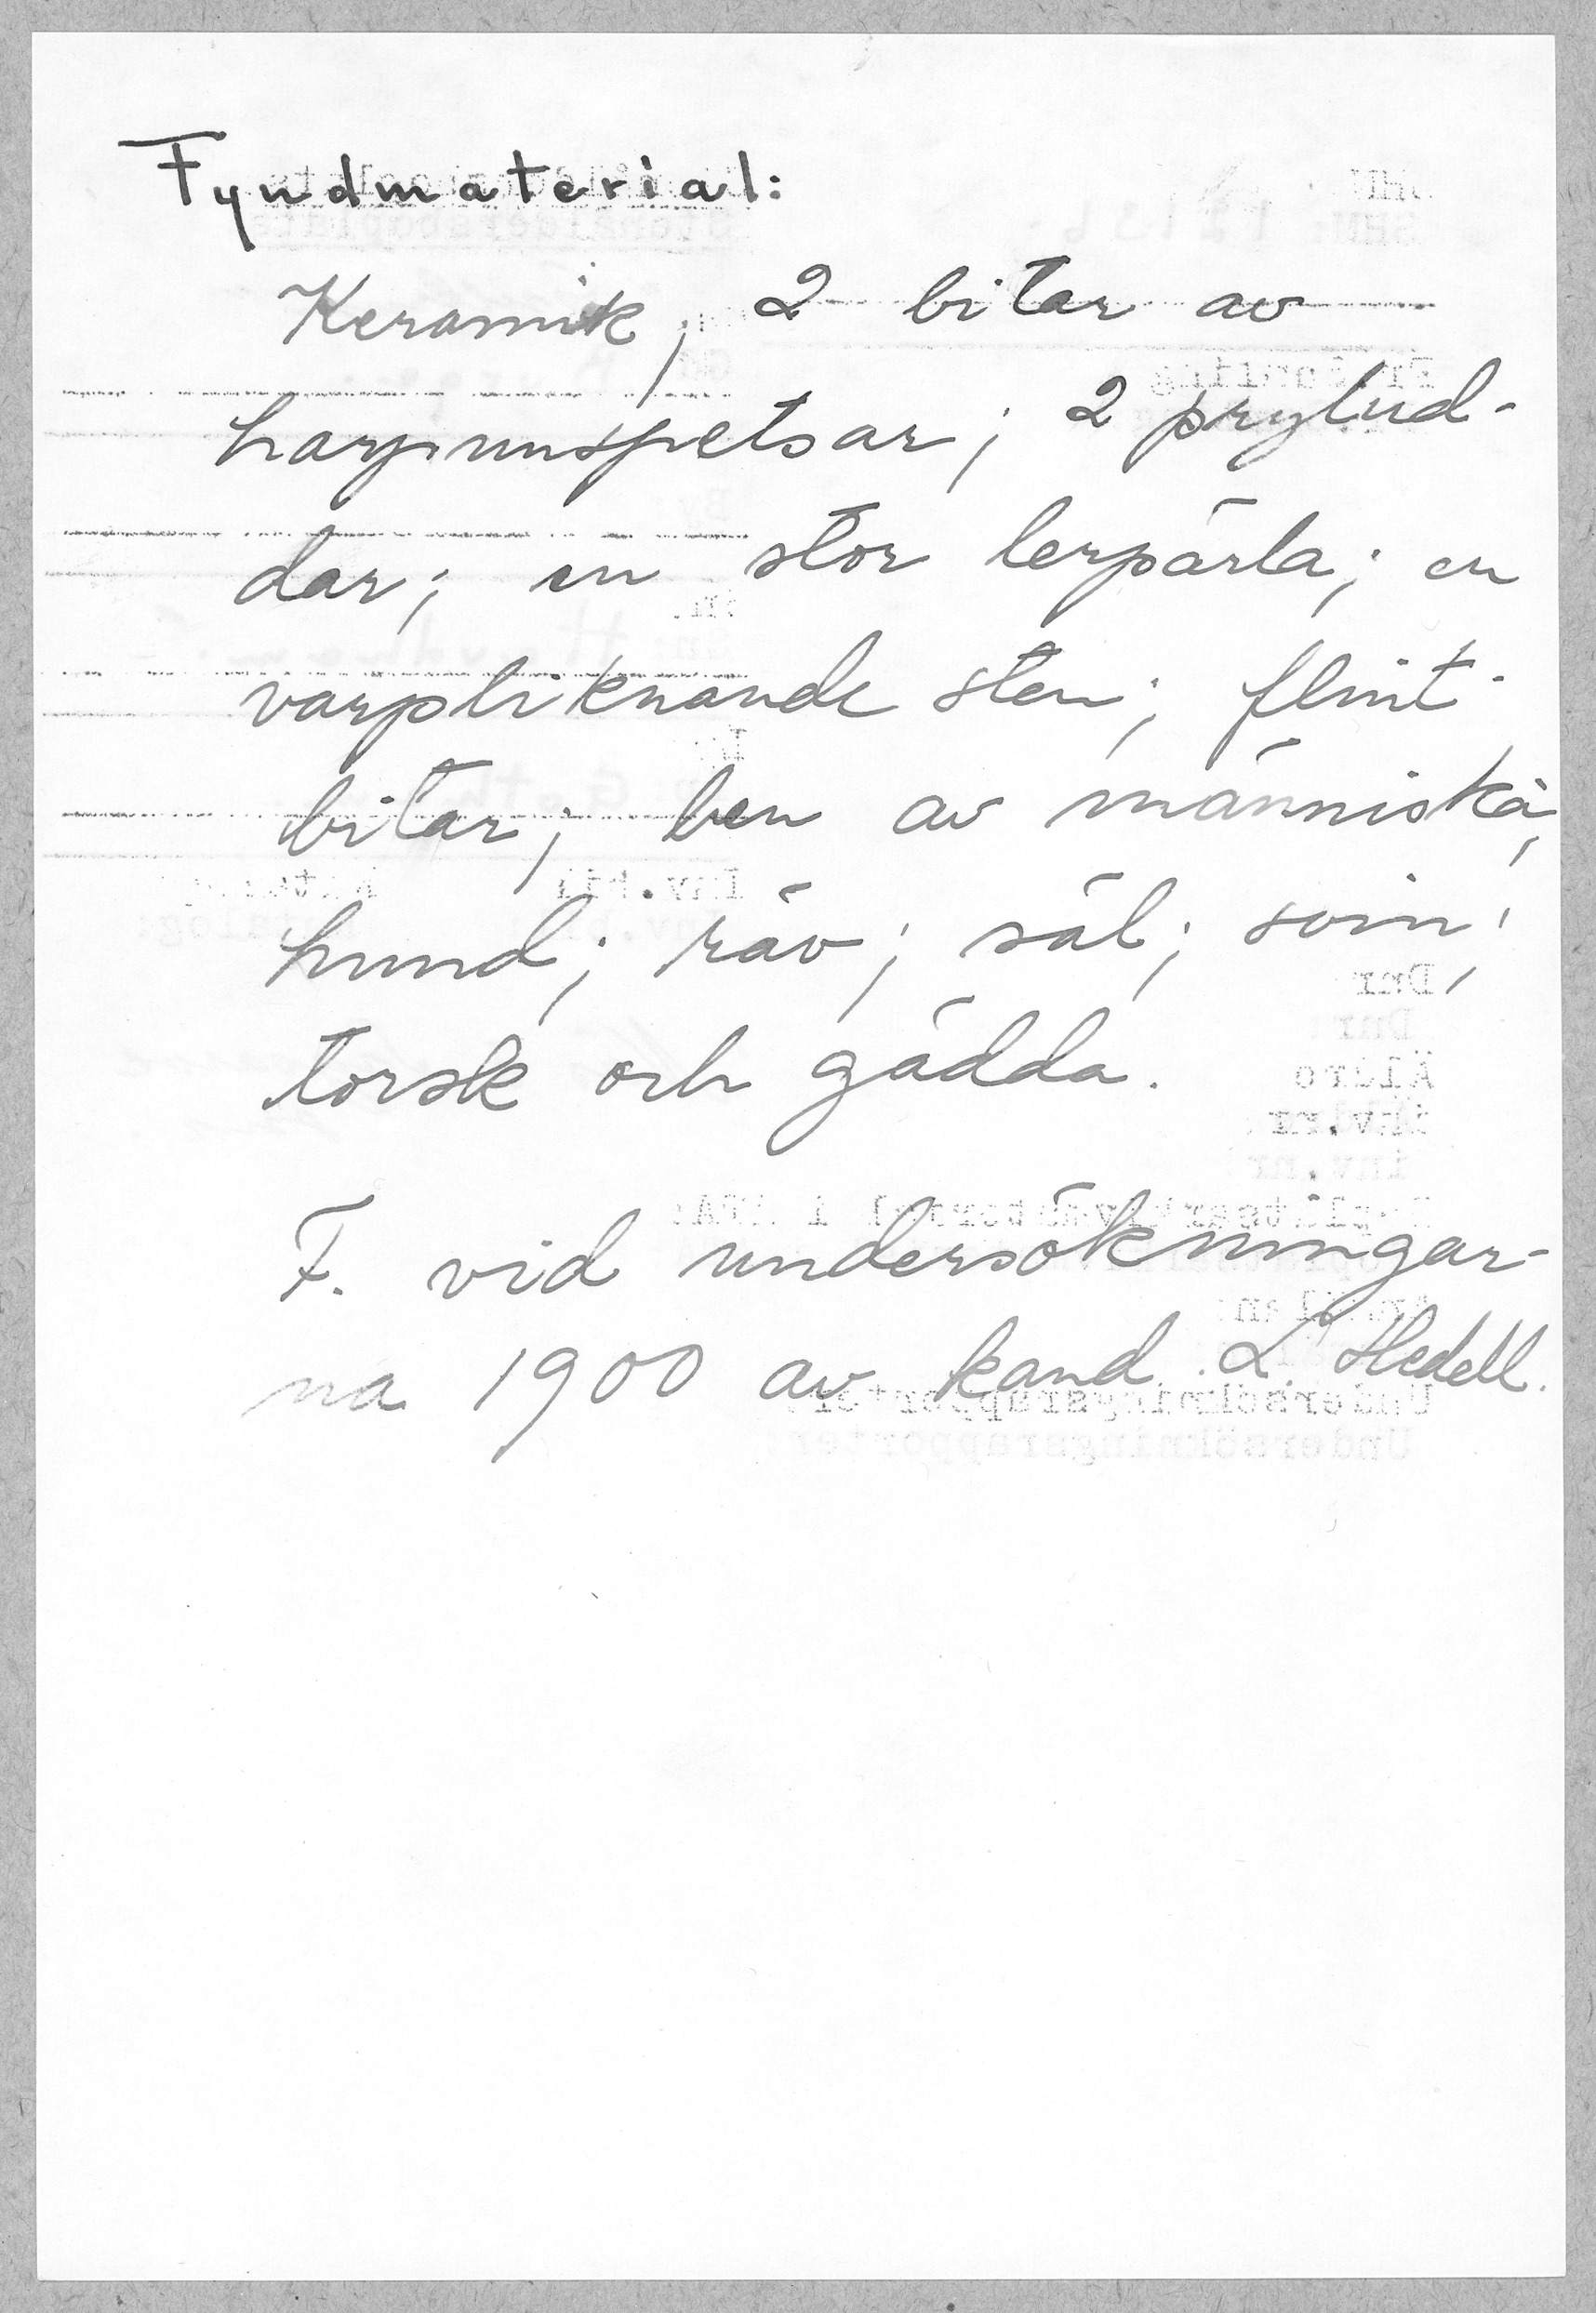 Fyndmaterial:
Keramik; 2 bitar av
harpunspetsar; 2 prylud-
dar; en stor lerpärla; en
varpliknande sten; flint-
bitar; ben av människa;
hund; räv; säl; svin;
torsk och gädda.
F. vid undersökningar-
na 1900 av kand. L. Hedell.